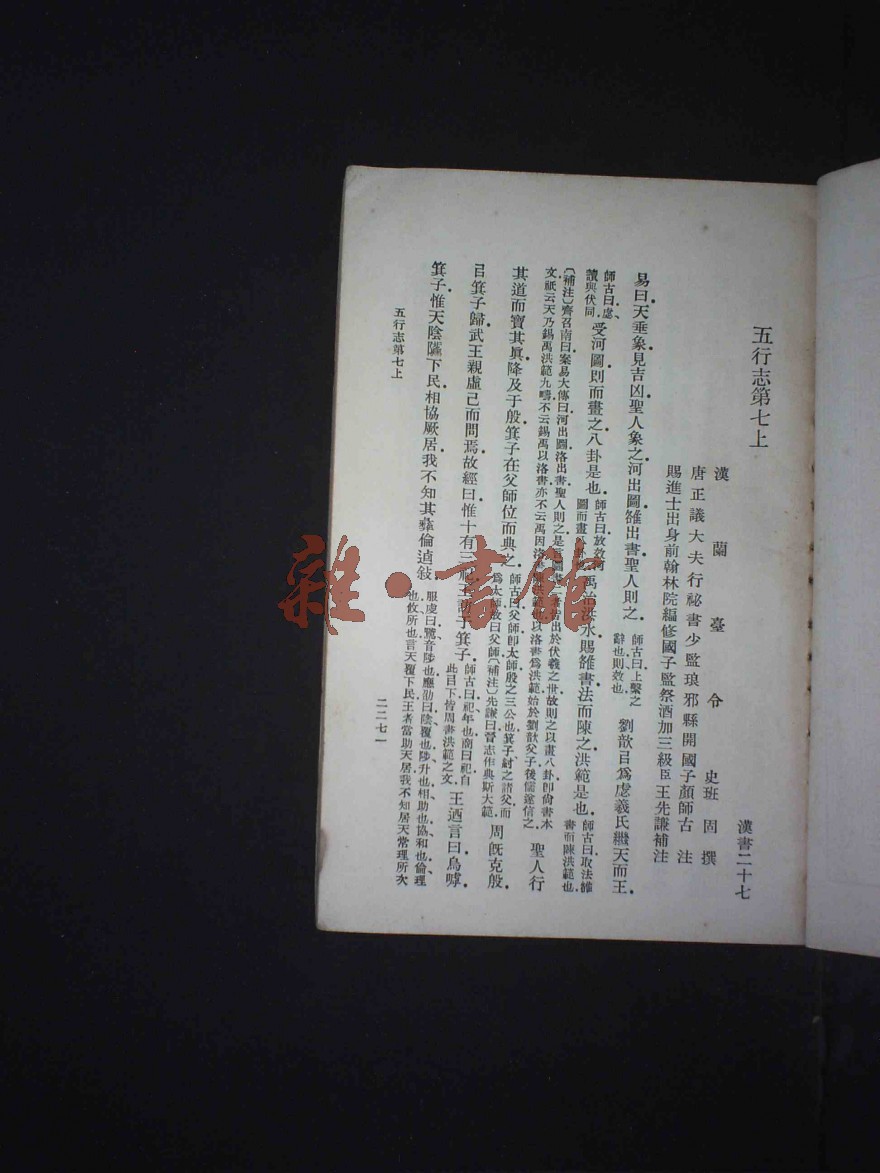 五行志第七上
漢書二十七
漢蘭臺令史班固撰
唐正議大夫行祕書少監琅邪縣開國子顏師古注
賜進士出身前翰林院編修國子監祭酒加三級臣王先謙補注
易曰天垂象見吉凶聖人象之河出圖雒出書聖人則之師古曰上繫之辭也則效也劉歆㠯爲虙羲氏繼天而王
師古曰虙讀與伏同受河圖則而畫之八卦是也師古曰放效河圖而畫八卦也禹治洪水賜雒書法而陳之洪範是也師古曰取法雒書而陳洪範也
〔補注〕齊召南曰案易大傳曰河出圖洛出書聖人則之是圖書並出於伏羲之世故則之以畫八卦卽尙書本
文祇云天乃錫禹洪範九疇不云錫禹以洛書亦不云禹因洛書陳洪範也以洛書爲洪範始於劉歆父子後儒遂信之聖人行
其道而寶其眞降及于殷箕子在父師位而典之師古曰父師卽太師殷之三公也箕子紂之諸父而爲太師故曰父師〔補注〕先謙曰晉志作典斯大範周旣克殷
㠯箕子歸武王親虛己而問焉故經曰惟十有三祀王訪于箕子師古曰祀年也商曰祀自此目下皆周書洪範之文王迺言曰烏嘑
箕子惟天陰騭下民相協厥居我不知其彝倫逌敍服虔曰騭音陟也應劭曰陰覆也陟升也相助也協和也倫理也攸所也言天覆下民王者當助天居我不知居天常理所次
五行志第七上
二二七一
雜·書館